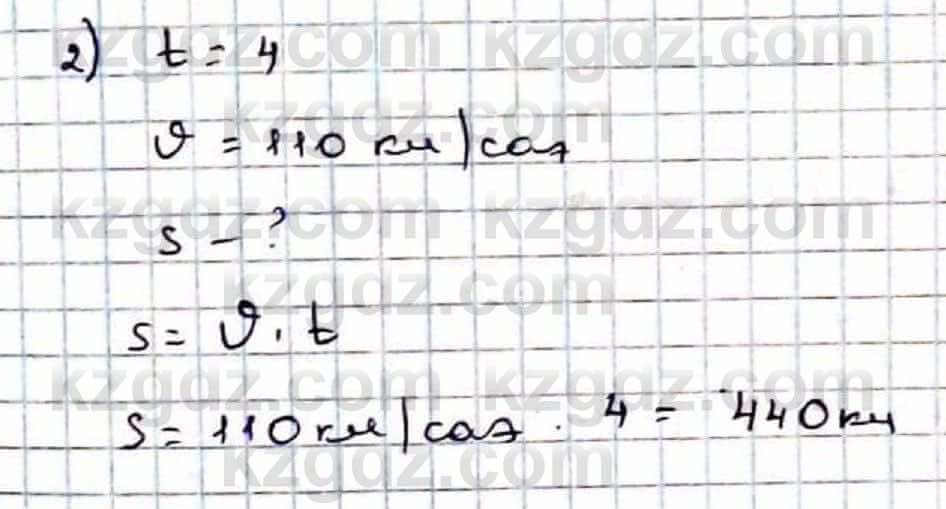 kzgdz.com kzgdz.com
2) t = 4
kzgdz.com
υ = 110 км/сағ
kzgdz.com kzgdz.com
s - ?
kzgdz.com
s = υ · t
kzgdz.com kzgdz.com
s = 110 км/сағ · 4 = 440 км
kzgdz.com